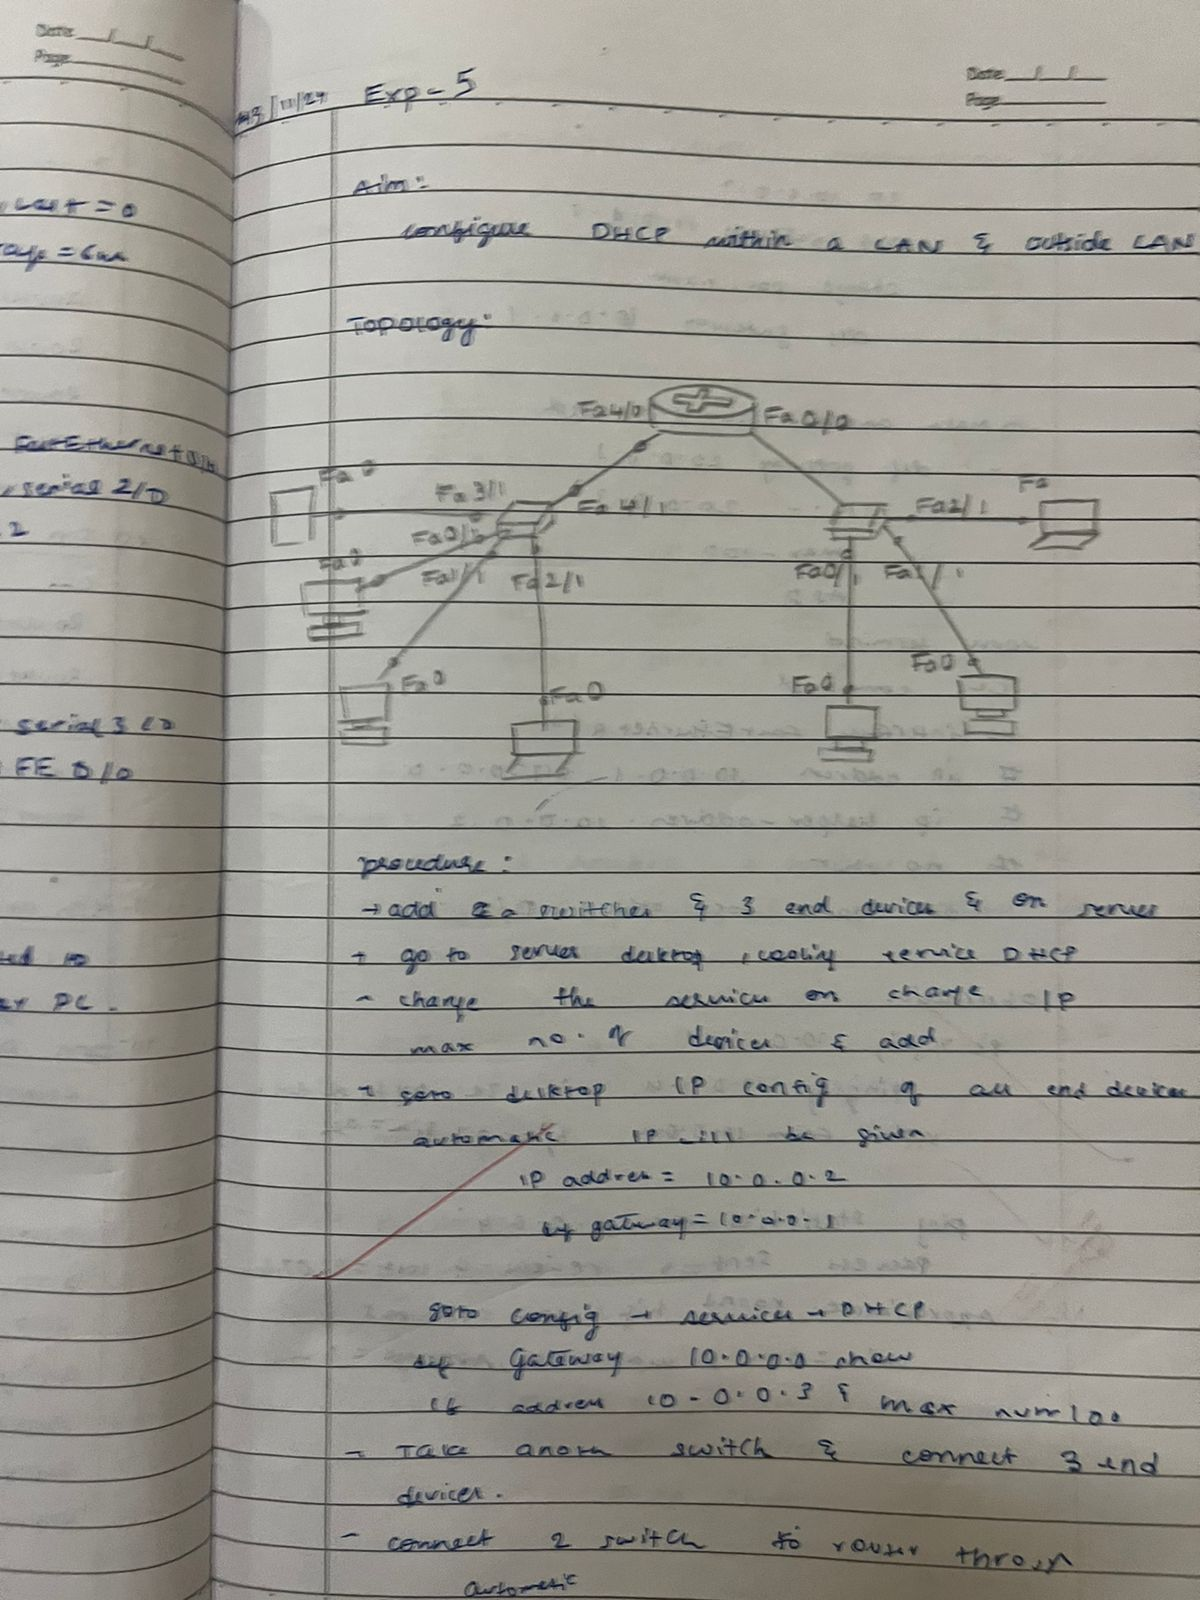 Date
Page
cast = 0
FastEthernet
, serial 2/0
2
serial 3/0
FE 0/0
PC.
Date
Page
/11/24 Exp - 5
Aim:
configure DHCP within a LAN & outside LAN
Topology:
Fa4/0 Fa0/0
Fa0 Fa3/1 Fa4/1 Fa2/1 Fa
Fa0 Fa0/1 Fa1/1 Fa2/1 Fa0/1 Fa1/1
Fa0 Fa0 Fa0 Fa0
procedure:
→ add a switches & 3 end devices & on server
→ go to server desktop, service DHCP
- change the services on change IP
max no. of devices & add
→ goto desktop IP config of all end devices
automatic IP will be given
IP address = 10.0.0.2
gateway = 10.0.0.1
goto config → services → DHCP
Gateway 10.0.0.0
address 10.0.0.3 & max num 100
- Take switch & connect 3 end
devices.
- connect 2 switch to router
automatic